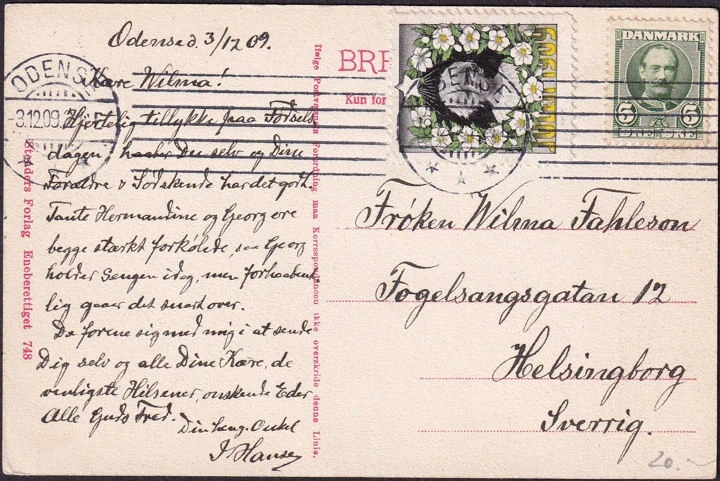 Odense d. 3/12 09.
Kære Wilma!
Hjertelig tillykke paa Fødsels
dagen, haaber Du selv og Dine
Forældre & Sødskende har det godt.
Tante Hermandine og Georg ere
begge stærkt forkølede, saa Georg
holder Sengen idag, men forhaabent
lig gaar det snart over.
De forene sig med mig i at sende
Dig selv og alle Dine Kære, de
venligste Hilsener, ønskende Eder
Alle Guds Fred.
Din heng. Onkel
J. Hansen
ODENSE
-3.12.09
Stenders Forlag Eneberettiget 748
Ifølge Postvæsenets Forordning maa Korrespondancen ikke overskride denne Linie.
BR
Kun for
JULEN 1909
ODENSE
DANMARK
5 5
ØRE ØRE
Frøken Wilma Fahleson
Fogelsangsgatan 12
Helsingborg
Sverrig.
20.-